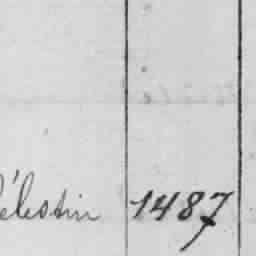 élestin 1487